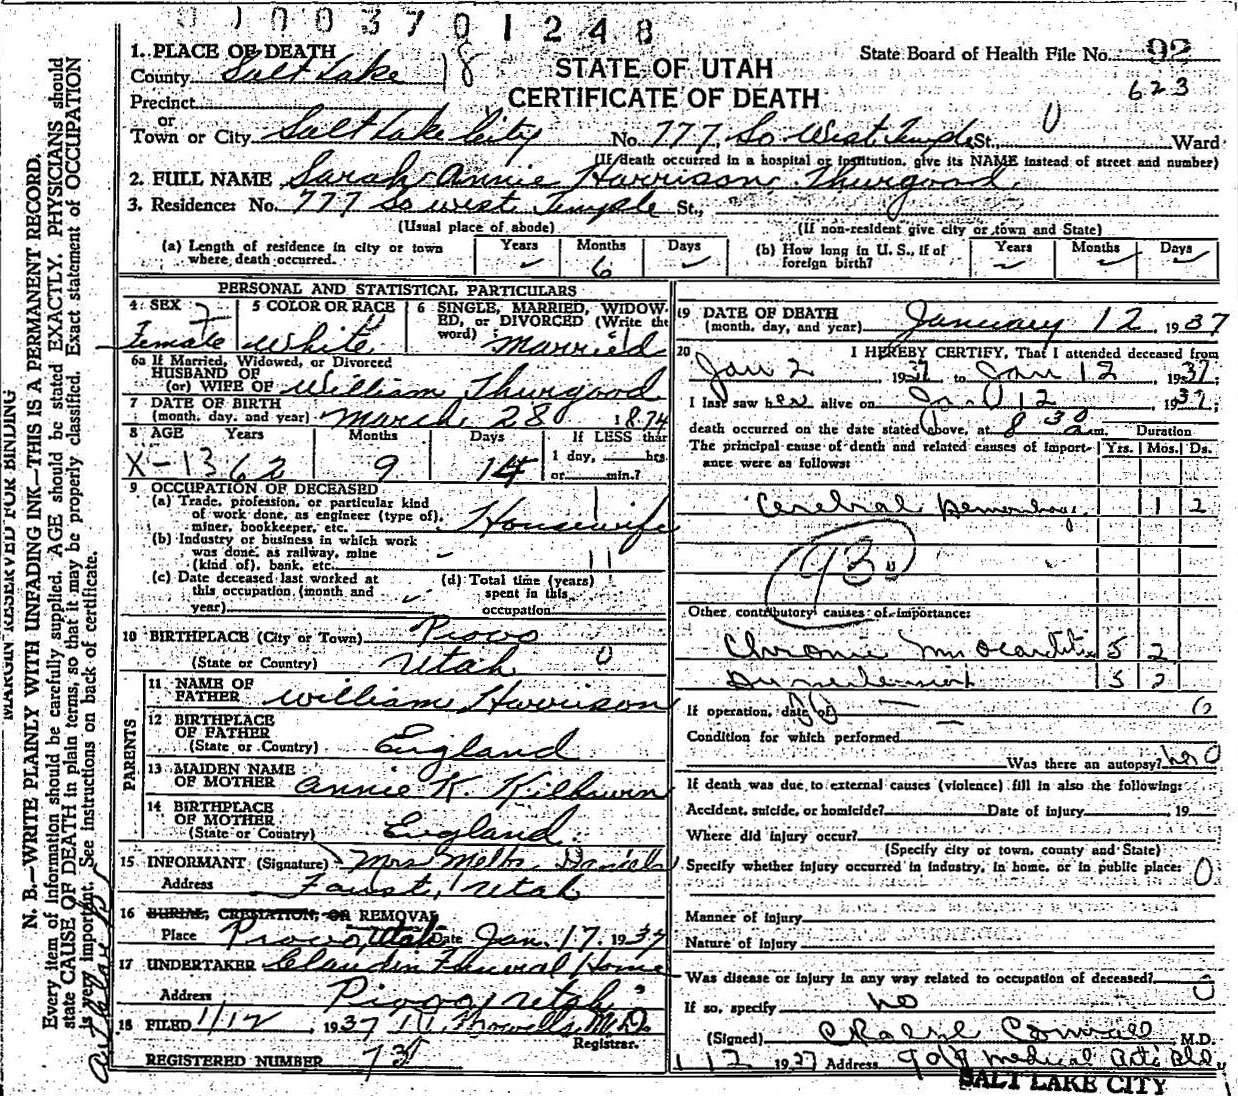 0 1 0 0 3 7 0 1 2 4 8
STATE OF UTAH
CERTIFICATE OF DEATH
State Board of Health File No. 92
623
1. PLACE OF DEATH
County Salt Lake 18
Precinct
or
Town or City Salt Lake City No. 777, So West Temple St., Ward
(If death occurred in a hospital or institution, give its NAME instead of street and number)
2. FULL NAME Sarah Annie Harrison Thurgood
3. Residence: No. 777 So West Temple St.,
(Usual place of abode) (If non-resident give city or town and State)
(a) Length of residence in city or town where death occurred. Years Months 6 Days
(b) How long in U. S., if of foreign birth? Years Months Days
PERSONAL AND STATISTICAL PARTICULARS
4 SEX Female
5 COLOR OR RACE White
6 SINGLE, MARRIED, WIDOWED, or DIVORCED (Write the word) Married
6a If Married, Widowed, or Divorced
HUSBAND OF
(or) WIFE OF William Thurgood
7 DATE OF BIRTH
(month, day, and year) March 28 1874
8 AGE Years Months Days If LESS than
X-13 62 9 14 1 day, hrs.
or min.?
9 OCCUPATION OF DECEASED
(a) Trade, profession, or particular kind
of work done, as engineer (type of),
miner, bookkeeper, etc. Housewife
(b) Industry or business in which work
was done, as railway, mine
(kind of), bank, etc. 11
(c) Date deceased last worked at
this occupation (month and
year)
(d) Total time (years)
spent in this
occupation
10 BIRTHPLACE (City or Town) Provo
(State or Country) Utah 0
PARENTS
11 NAME OF
FATHER William Harrison
12 BIRTHPLACE
OF FATHER
(State or Country) England
13 MAIDEN NAME
OF MOTHER Annie K.
14 BIRTHPLACE
OF MOTHER
(State or Country) England
15 INFORMANT (Signature) Mrs Melba Daniels
Address Faust, Utah
16 BURIAL, CREMATION, OR REMOVAL
Place Provo, Utah Date Jan. 17, 1937
17 UNDERTAKER Claudin Funeral Home
Address Provo, Utah
18 FILED 1/12, 1937 M.D.
Registrar.
REGISTERED NUMBER 73
19 DATE OF DEATH
(month, day, and year) January 12 1937
20 I HEREBY CERTIFY, That I attended deceased from
Jan 2, 1937, to Jan 12, 1937;
I last saw her alive on Jan 12, 1937;
death occurred on the date stated above, at 8 30 a m. Duration
The principal cause of death and related causes of importance were as follows: Yrs. Mos. Ds.
Cerebral Hemorrhage 1 2
93
Other contributory causes of importance:
Chronic Myocarditis 5 2
Hypertension
If operation, date of
Condition for which performed
Was there an autopsy? no
If death was due to external causes (violence) fill in also the following:
Accident, suicide, or homicide? Date of injury , 19
Where did injury occur?
(Specify city or town, county and State)
Specify whether injury occurred in industry, in home, or in public place:
Manner of injury
Nature of injury
Was disease or injury in any way related to occupation of deceased?
If so, specify no
(Signed) M.D.
1 12 1937 Address Medical Arts Bldg
SALT LAKE CITY
MARGIN RESERVED FOR BINDING
N. B.—WRITE PLAINLY WITH UNFADING INK—THIS IS A PERMANENT RECORD.
Every item of information should be carefully supplied. AGE should be stated EXACTLY. PHYSICIANS should
state CAUSE OF DEATH in plain terms, so that it may be properly classified. Exact statement of OCCUPATION
is very important. See instructions on back of certificate.